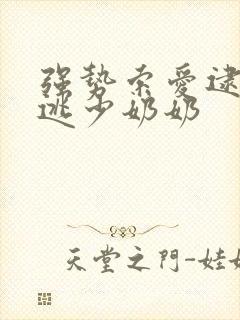 强势索爱逮
逃少奶奶
天堂之門-娃娃